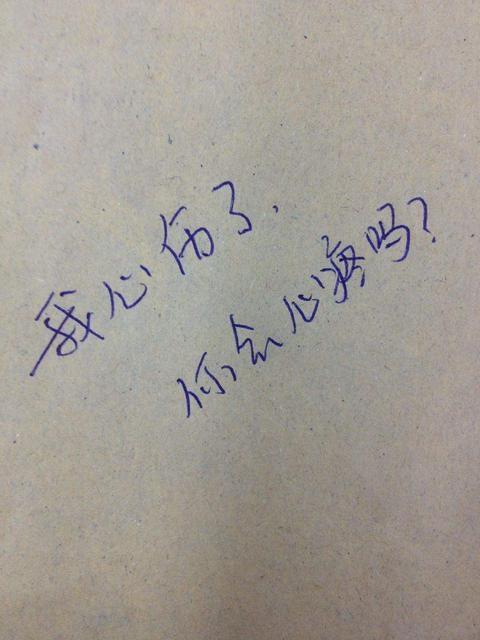 我心伤了.
你会心疼吗?